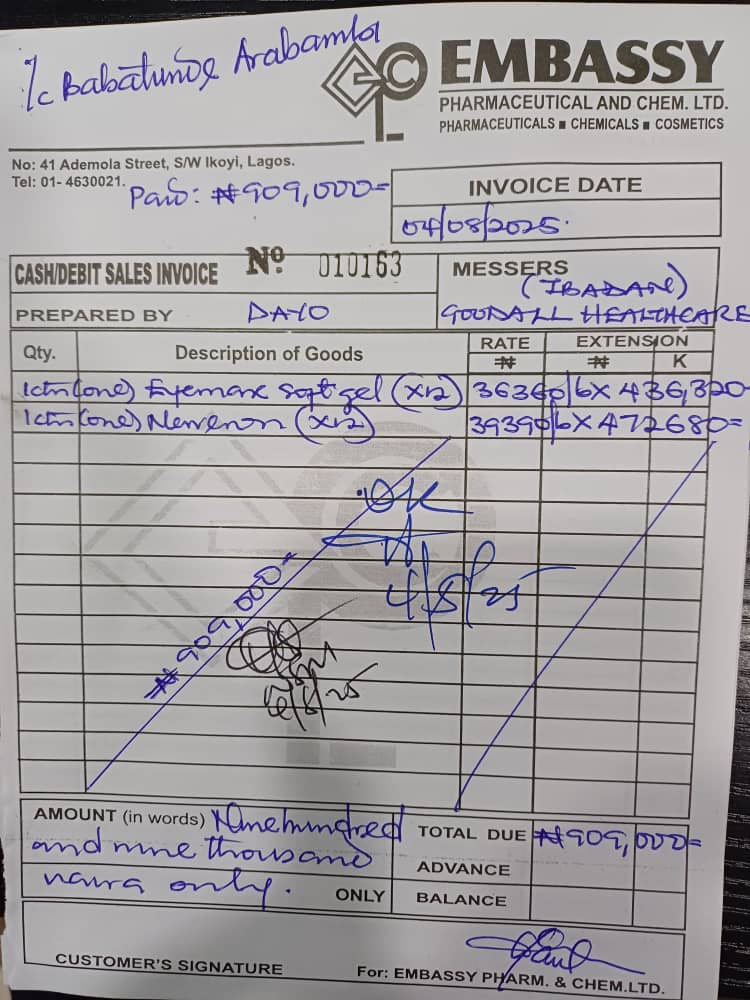 I/c Babatunde Arabambi
EMBASSY
PHARMACEUTICAL AND CHEM. LTD.
PHARMACEUTICALS ■ CHEMICALS ■ COSMETICS
No: 41 Ademola Street, S/W Ikoyi, Lagos.
Tel: 01- 4630021.
Paid: ₦909,000=
INVOICE DATE
04/08/2025.
CASH/DEBIT SALES INVOICE Nº. 010163
MESSERS (IBADAN)
PREPARED BY DAYO
GOODALL HEALTHCARE
Qty. Description of Goods RATE ₦ EXTENSION ₦ K
1ctn (one) Eyemax softgel (x12) 36360 436,320=
1ctn (one) (x12) 39390 472680=
OK
4/8/25
₦909,000=
AMOUNT (in words) Nine hundred
and nine thousand
naira only. ONLY
TOTAL DUE ₦909,000=
ADVANCE
BALANCE
CUSTOMER'S SIGNATURE
For: EMBASSY PHARM. & CHEM.LTD.